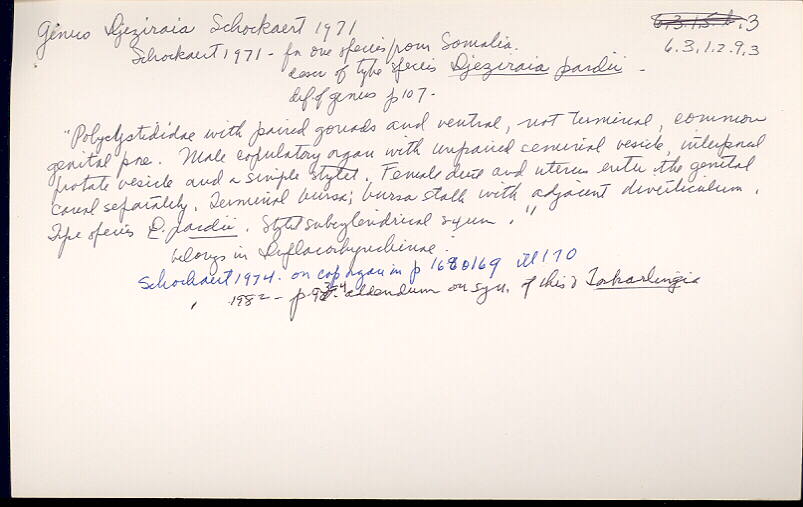 Genus Djeziraia Schockaert 1971
6.3.1.5.6.3
6.3.1.2.9.3
Schockaert 1971 - for one species from Somalia.
descr of type species Djeziraia pardii -
def of genus p 107 -
"Polycystididae with paired gonads and ventral, not terminal, common
genital pore. Male copulatory organ with unpaired seminal vesicle, interposed
prostate vesicle and a simple stylet. Female duct and uterus enter the genital
canal separately. Terminal bursa; bursa stalk with adjacent diverticulum.
Type species D. pardii. Stylet subcylindrical
belongs in
Schockaert 1974 - on cop organ in p 168 169 ill 170
1982 - addendum on syn. of this & Torkarlingia